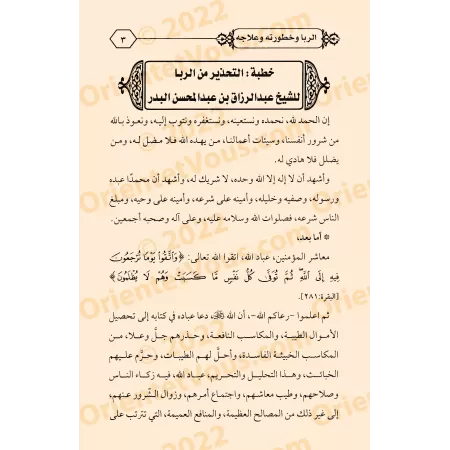 الربا وخطورته وعلاجه
٣
خطبة: التحذير من الربا
للشيخ عبدالرزاق بن عبدالمحسن البدر
إن الحمد لله، نحمده ونستعينه، ونستغفره ونتوب إليه، ونعوذ بالله
من شرور أنفسنا، وسيئات أعمالنا، من يهده الله فلا مضل له، ومن
يضلل فلا هادي له.
وأشهد أن لا إله إلا الله وحده، لا شريك له، وأشهد أن محمدًا عبده
ورسوله، وصفيه وخليله، وأمينه على شرعه، وأمينه على وحيه، ومبلغ
الناس شرعه، فصلوات الله وسلامه عليه، وعلى آله وصحبه أجمعين.
* أما بعد،
معاشر المؤمنين، عباد الله، اتقوا الله تعالى: ﴿وَاتَّقُوا يَوْمًا تُرْجَعُونَ
فِيهِ إِلَى اللَّهِ ثُمَّ تُوَفَّىٰ كُلُّ نَفْسٍ مَّا كَسَبَتْ وَهُمْ لَا يُظْلَمُونَ﴾
[البقرة:٢٨١].
ثم اعلموا -رعاكم الله-، أن الله ﷻ، دعا عباده في كتابه إلى تحصيل
الأموال الطيبة، والمكاسب النافعة، وحذرهم جلَّ وعلا، من
المكاسب الخبيثة الفاسدة، وأحلَّ لهم الطيبات، وحرَّم عليهم
الخبائث، وهذا التحليل والتحريم، عباد الله، فيه زكاء الناس
وصلاحهم، وطيب معاشهم، واجتماع أمرهم، وزوال الشرور عنهم،
إلى غير ذلك من المصالح العظيمة، والمنافع العميمة، التي تترتب على
© 2022
OrientetVous.com